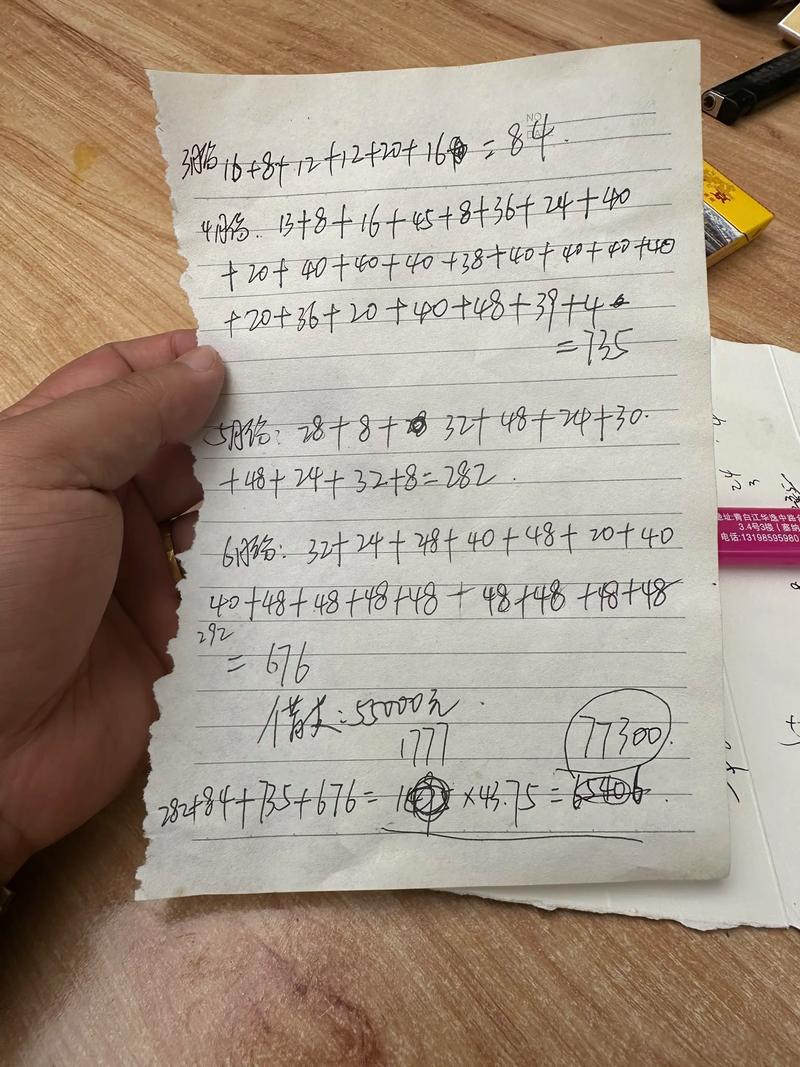 NO
3月份 16+8+12+12+20+16 = 84.
4月份: 13+8+16+45+8+36+24+40
+20+40+40+40+38+40+40+40+40
+20+36+20+40+48+39+4
=735
5月份: 28+8+ 32+48+24+30.
+48+24+32+8=282.
6月份: 32+24+28+40+48+20+40
40+48+48+48+48+48+48+48+48
292
= 676
借支:55000元.
1777
77300.
282+84+735+676= ×43.75=65406.
地址:青白江华逸中路
3.4号3楼(塞纳
电话:13198595980